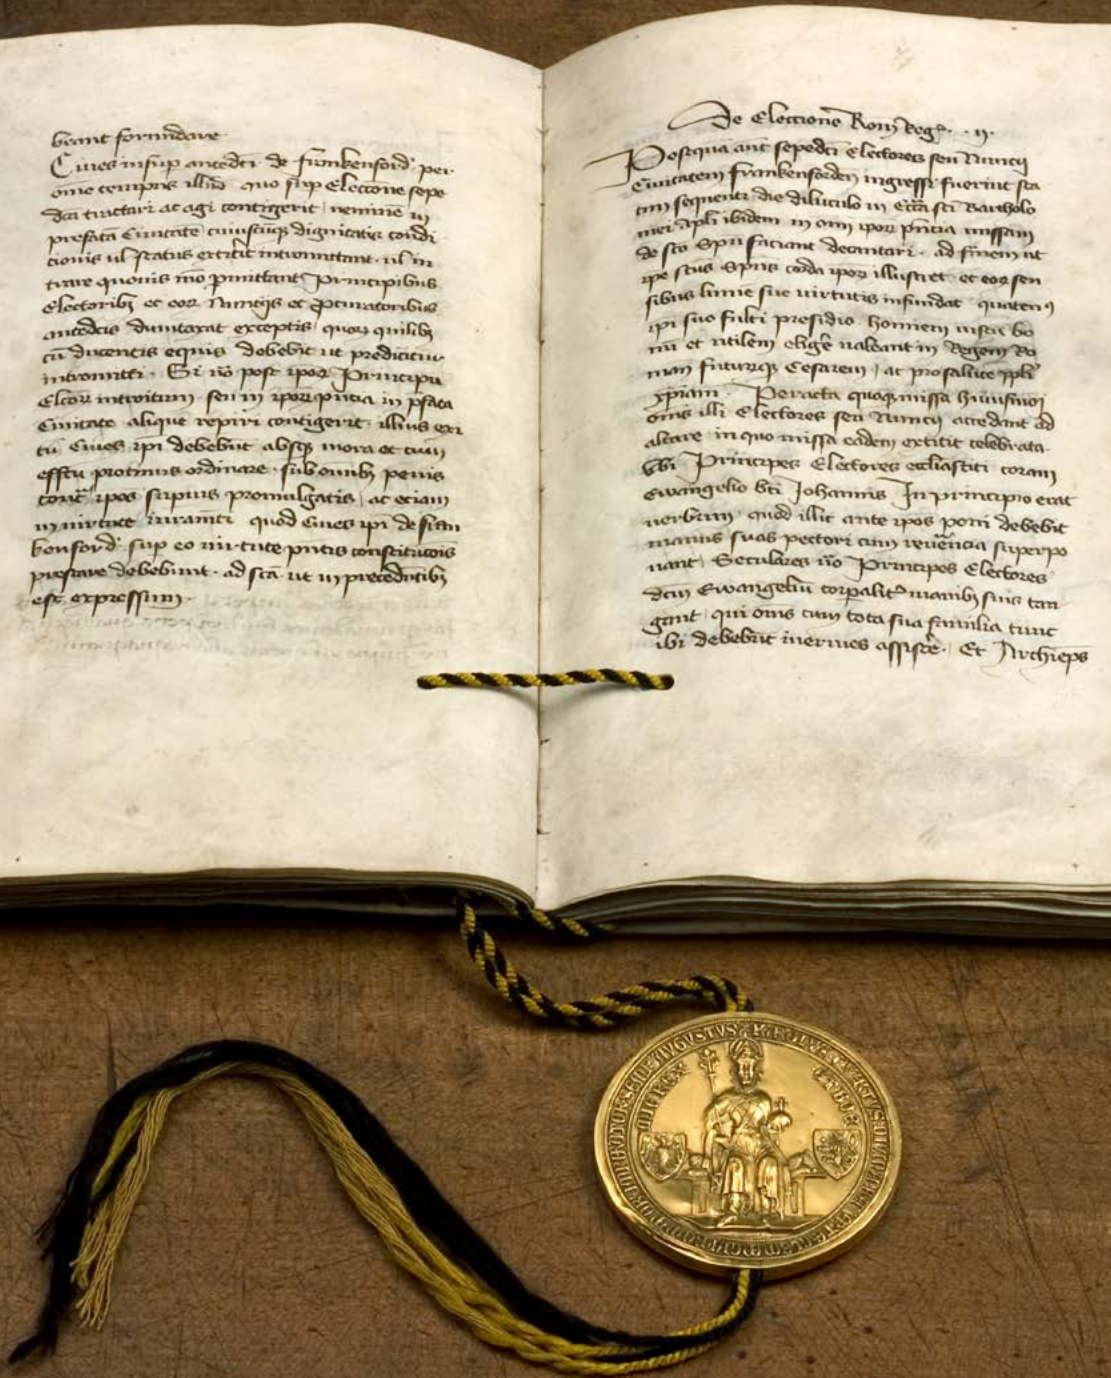 beant formidare
Cives insup antedcti de frankenford per
ome tempus illud quo sup Eleccione sepe
dca tractari ac agi contigerit neminem in
prefata Civitate cuiuscuq dignitatis condi
cionis vl status extitit intromittant vl in
trare quovis mo pmittant Principibus
Electoribz et eor Nuncijs et Pcuratoribus
antedcis dumtaxat exceptis quor quilibz
cu ducentis equis debebit ut predicitur
intromitti Si vo post ipor Principu
Elcor introitum seu in ipor pntia in pfata
Civitate alique repiri contigerit illius exi
tu Cives ipi debebut absq mora et cum
effctu protinus ordinare sub omibz penis
contra ipos supius promulgatis ac eciam
in virtute iuramti quod Cives ipi de fran
kenford sup eo virtute pntis constitucois
prestare debebunt ad sca ut in precedetibz
est expressum
De Eleccione Rom Reg . ij.
Postqua aut sepedcti Electores seu Nuncij
Civitatem frankenforden ingressi fuerint sta
tim sequenti die diluculo in Ecca sci Bartholo
mei apli ibidem in om ipor pntia missam
de sco Spu faciant decantari ad finem ut
ipe scus Spus corda ipor illustret et eor sen
sibus lume sue virtutis infundat quaten9
ipi suo fulti presidio hominem iustu bo
nu et utilem eligere valeant in Regem Ro
man futurumq Cesarem ac pro salute ppli
xpiani Peracta quoq missa huiusmoi
oms illi Electores seu Nuncij accedant ad
altare in quo missa eadem extitit celebrata
Ubi Principes Electores eccliastici coram
Ewangelio bti Johannis In principio erat
verbum quod illic ante ipos poni debebit
manus suas pectori cum reverencia superpo
nant Seculares vo Principes Electores
dcm Ewangeliu corpalit manibz suis tan
gant qui oms cum tota sua familia tunc
ibi debebut inermes assistere Et Archieps
AVGVSTVS KAROLVS